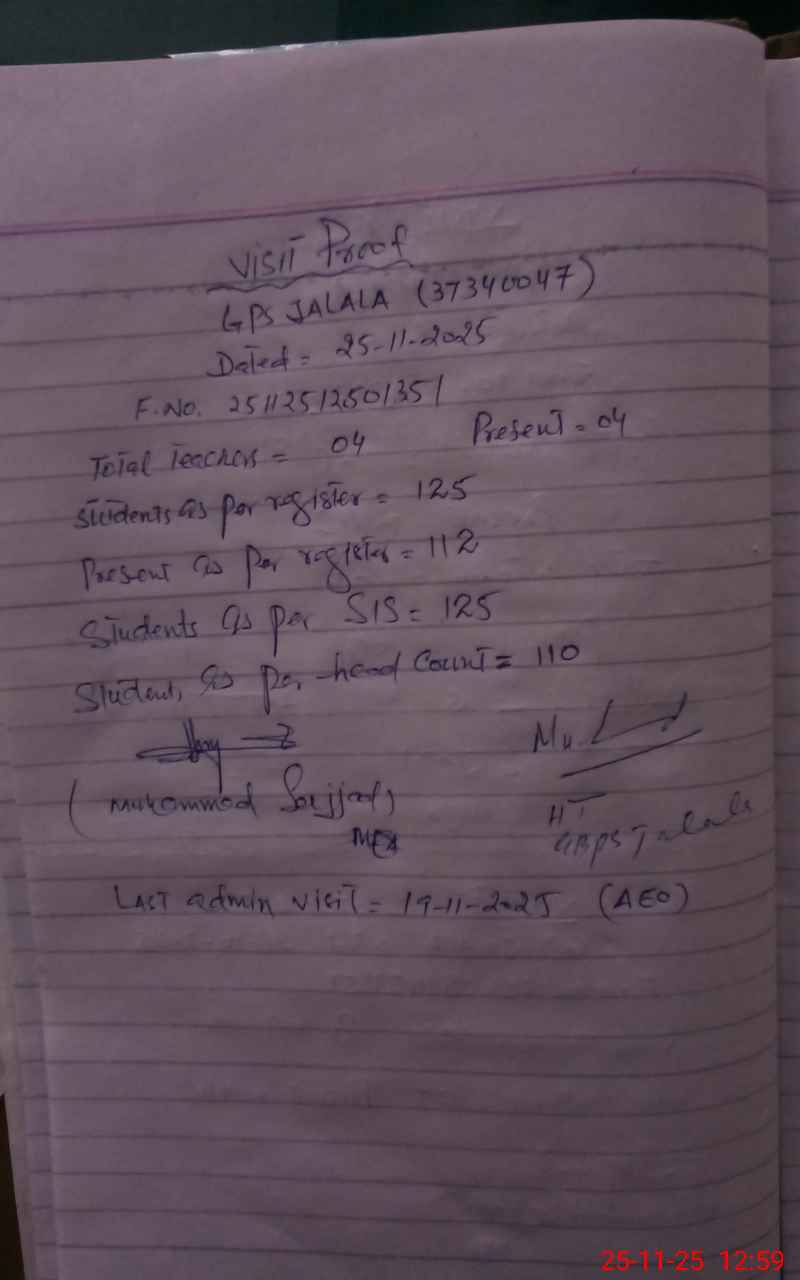 Visit Proof
GPS JALALA (37340047)
Dated = 25-11-2025
F.No. 25112512501351
Total Teachers = 04 Present = 04
Students as per register = 125
Present as per register = 112
Students as per SIS = 125
Students as per head Count = 110
(Muhammad Sajjad)
MEA
HT
GBPS Jalala
Last admin visit = 19-11-2025 (AEO)
25-11-25 12:59